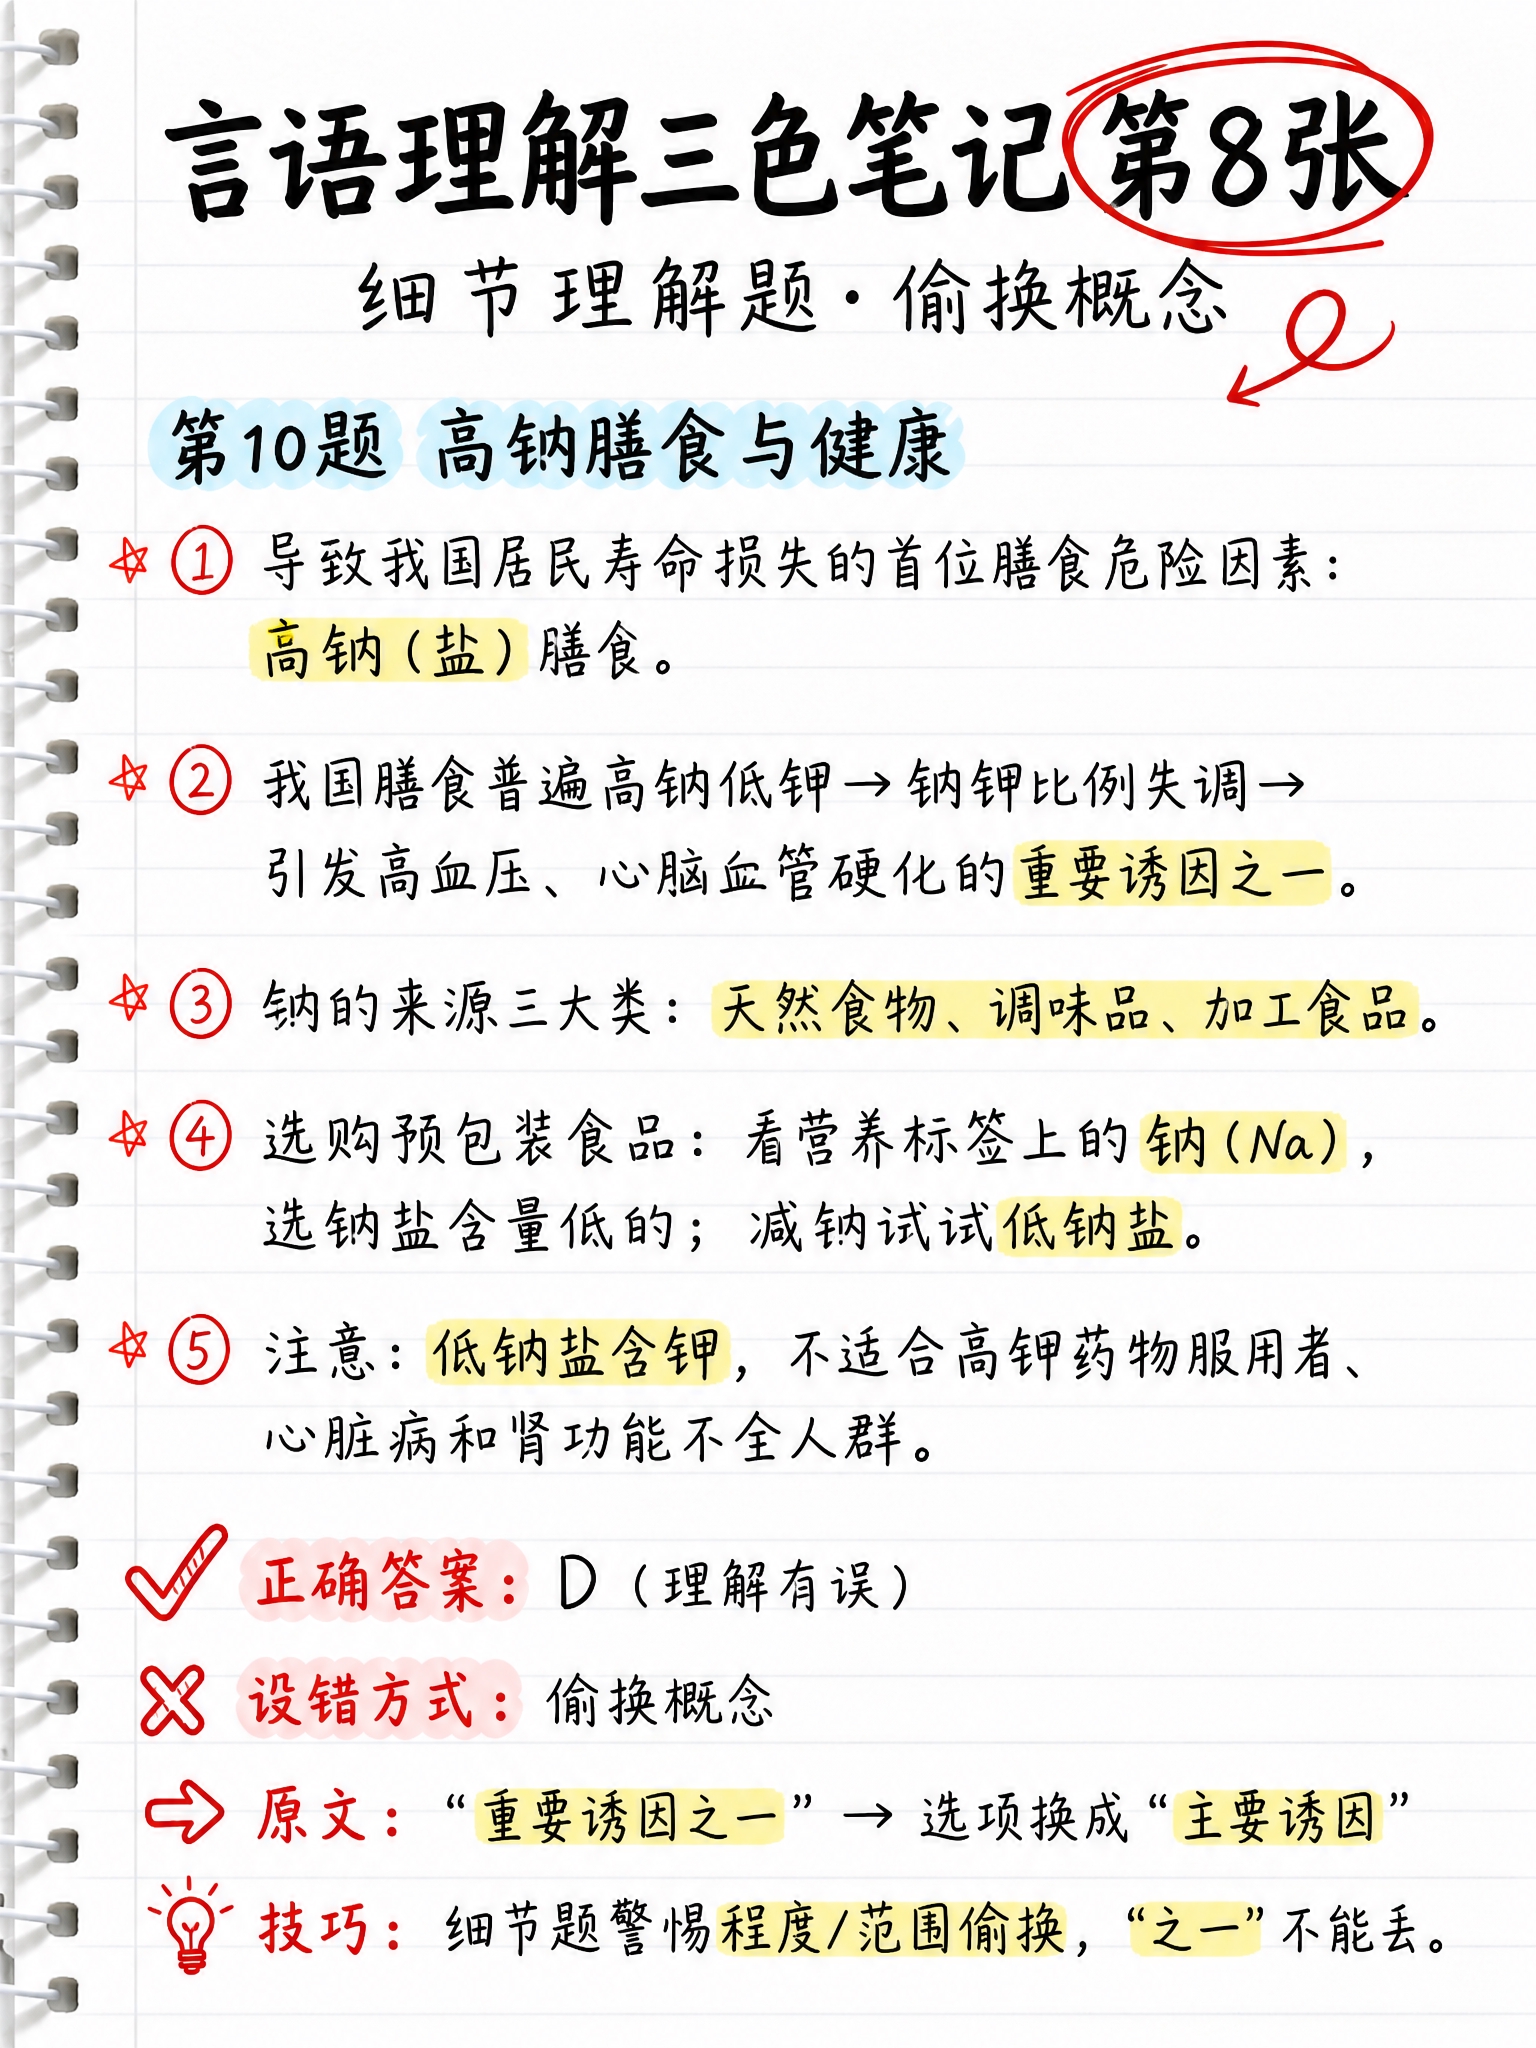 言语理解三色笔记第8张
细节理解题·偷换概念
第10题 高钠膳食与健康
① 导致我国居民寿命损失的首位膳食危险因素：
高钠(盐)膳食。
② 我国膳食普遍高钠低钾→钠钾比例失调→
引发高血压、心脑血管硬化的重要诱因之一。
③ 钠的来源三大类：天然食物、调味品、加工食品。
④ 选购预包装食品：看营养标签上的钠(Na)，
选钠盐含量低的；减钠试试低钠盐。
⑤ 注意：低钠盐含钾，不适合高钾药物服用者、
心脏病和肾功能不全人群。
正确答案：D（理解有误）
设错方式：偷换概念
原文：“重要诱因之一”→选项换成“主要诱因”
技巧：细节题警惕程度/范围偷换，“之一”不能丢。